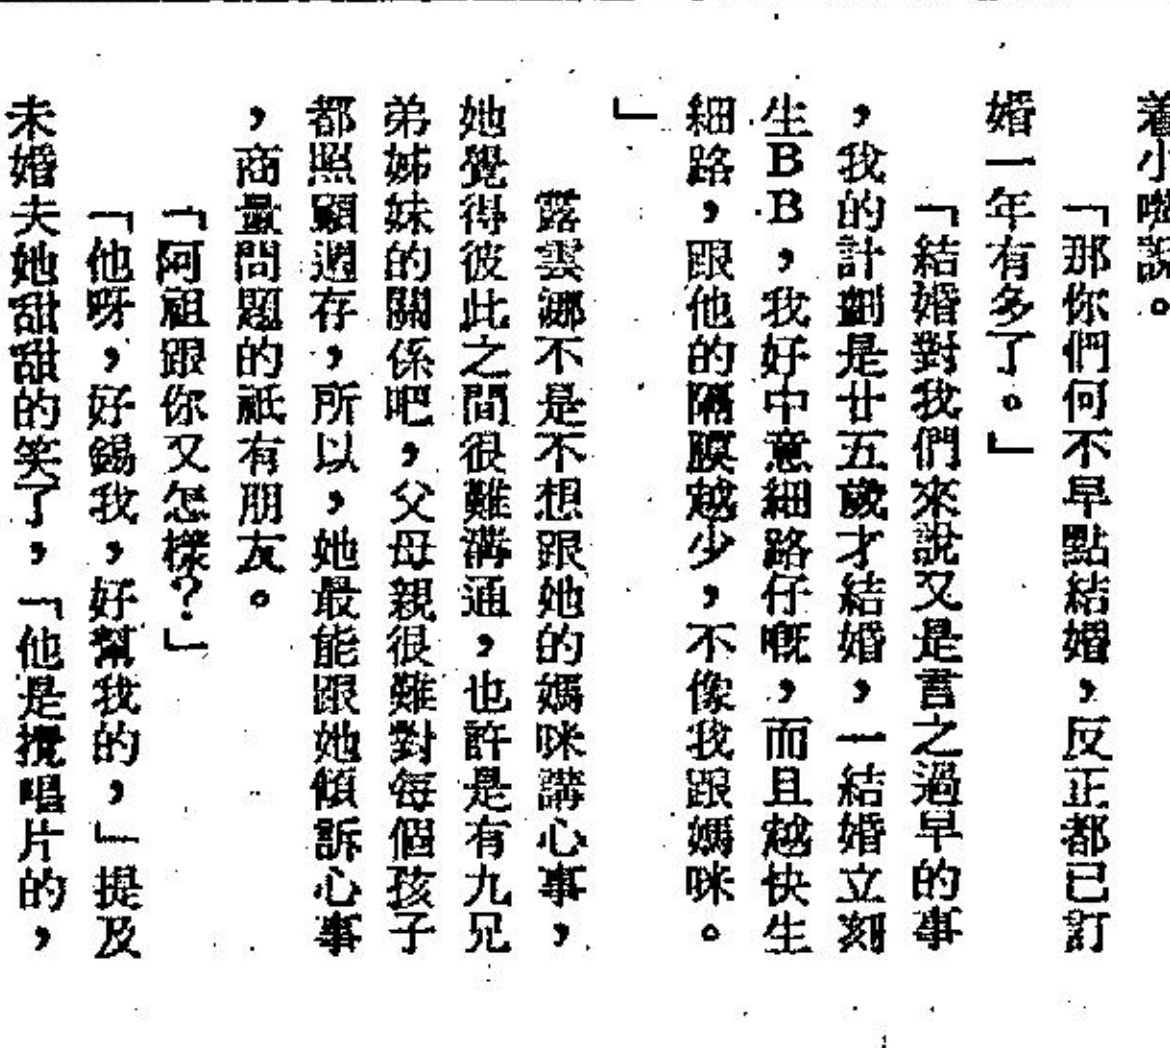 着小嘴說。
「那你們何不早點結婚，反正都已訂
婚一年有多了。」
「結婚對我們來說又是言之過早的事
，我的計劃是廿五歲才結婚，一結婚立刻
生BB，我好中意細路仔嘅，而且越快生
細路，跟他的隔膜越少，不像我跟媽咪。
」
露雲娜不是不想跟她的媽咪講心事，
她覺得彼此之間很難溝通，也許是有九兄
弟姊妹的關係吧，父母親很難對每個孩子
都照顧週存，所以，她最能跟她傾訴心事
，商量問題的祇有朋友。
「阿祖跟你又怎樣？」
「他呀，好錫我，好幫我的，」提及
未婚夫她甜甜的笑了，「他是攪唱片的，